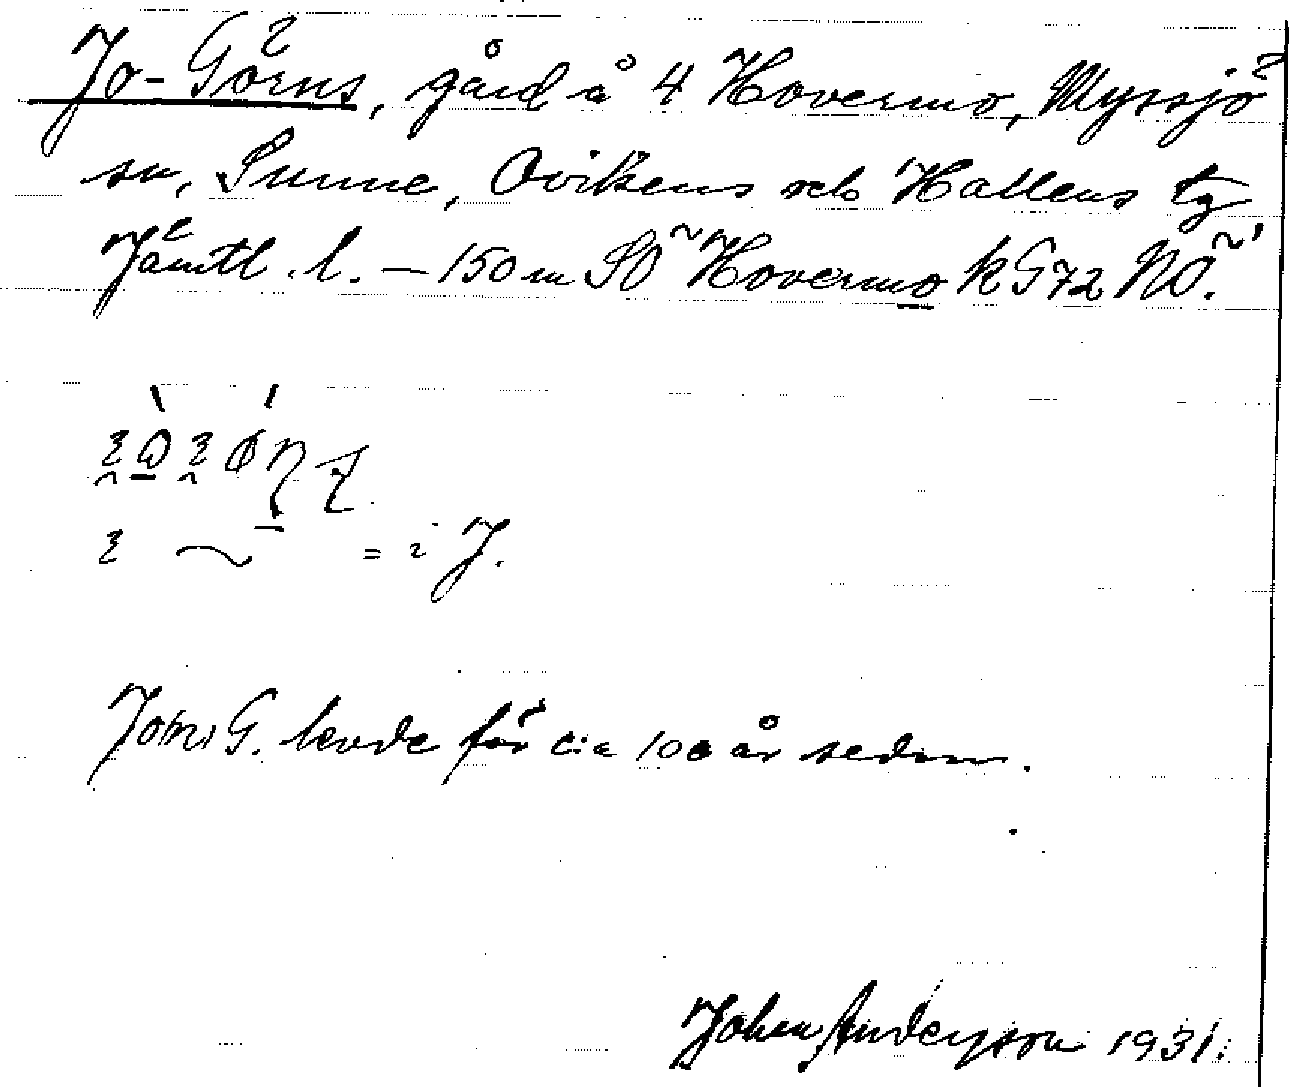 Jo-Görns, gård å 4 Hovermo, Myssjö
sn, Sunne, Ovikens och Hallens tg
Jämtl. l. – 150 m SO Hovermo k G72 NO.
= i J.
G. levde för c:a 100 år sedan.
Johan Anderson 1931.